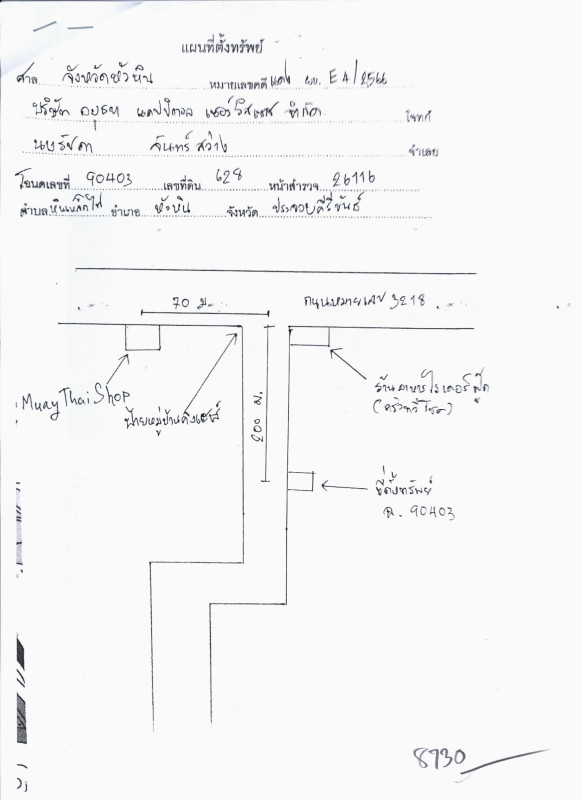 แผนที่ตั้งทรัพย์
ศาล จังหวัดหัวหิน หมายเลขคดี แดง ผบ. E4/2566
บริษัท อยุธยา แคปปิตอล เซอร์วิสเซส จำกัด โจทก์
จันทร์สว่าง จำเลย
โฉนดเลขที่ 90403 เลขที่ดิน 628 หน้าสำรวจ 26116
ตำบล หินเหล็กไฟ อำเภอ หัวหิน จังหวัด ประจวบคีรีขันธ์
70 ม. ถนนหมายเลข 3218
Muay Thai Shop
ป้ายหมู่บ้าน
ร้านอาหารไรเดอร์ฟู๊ด
200 ม.
ที่ตั้งทรัพย์
ฉ. 90403
8930